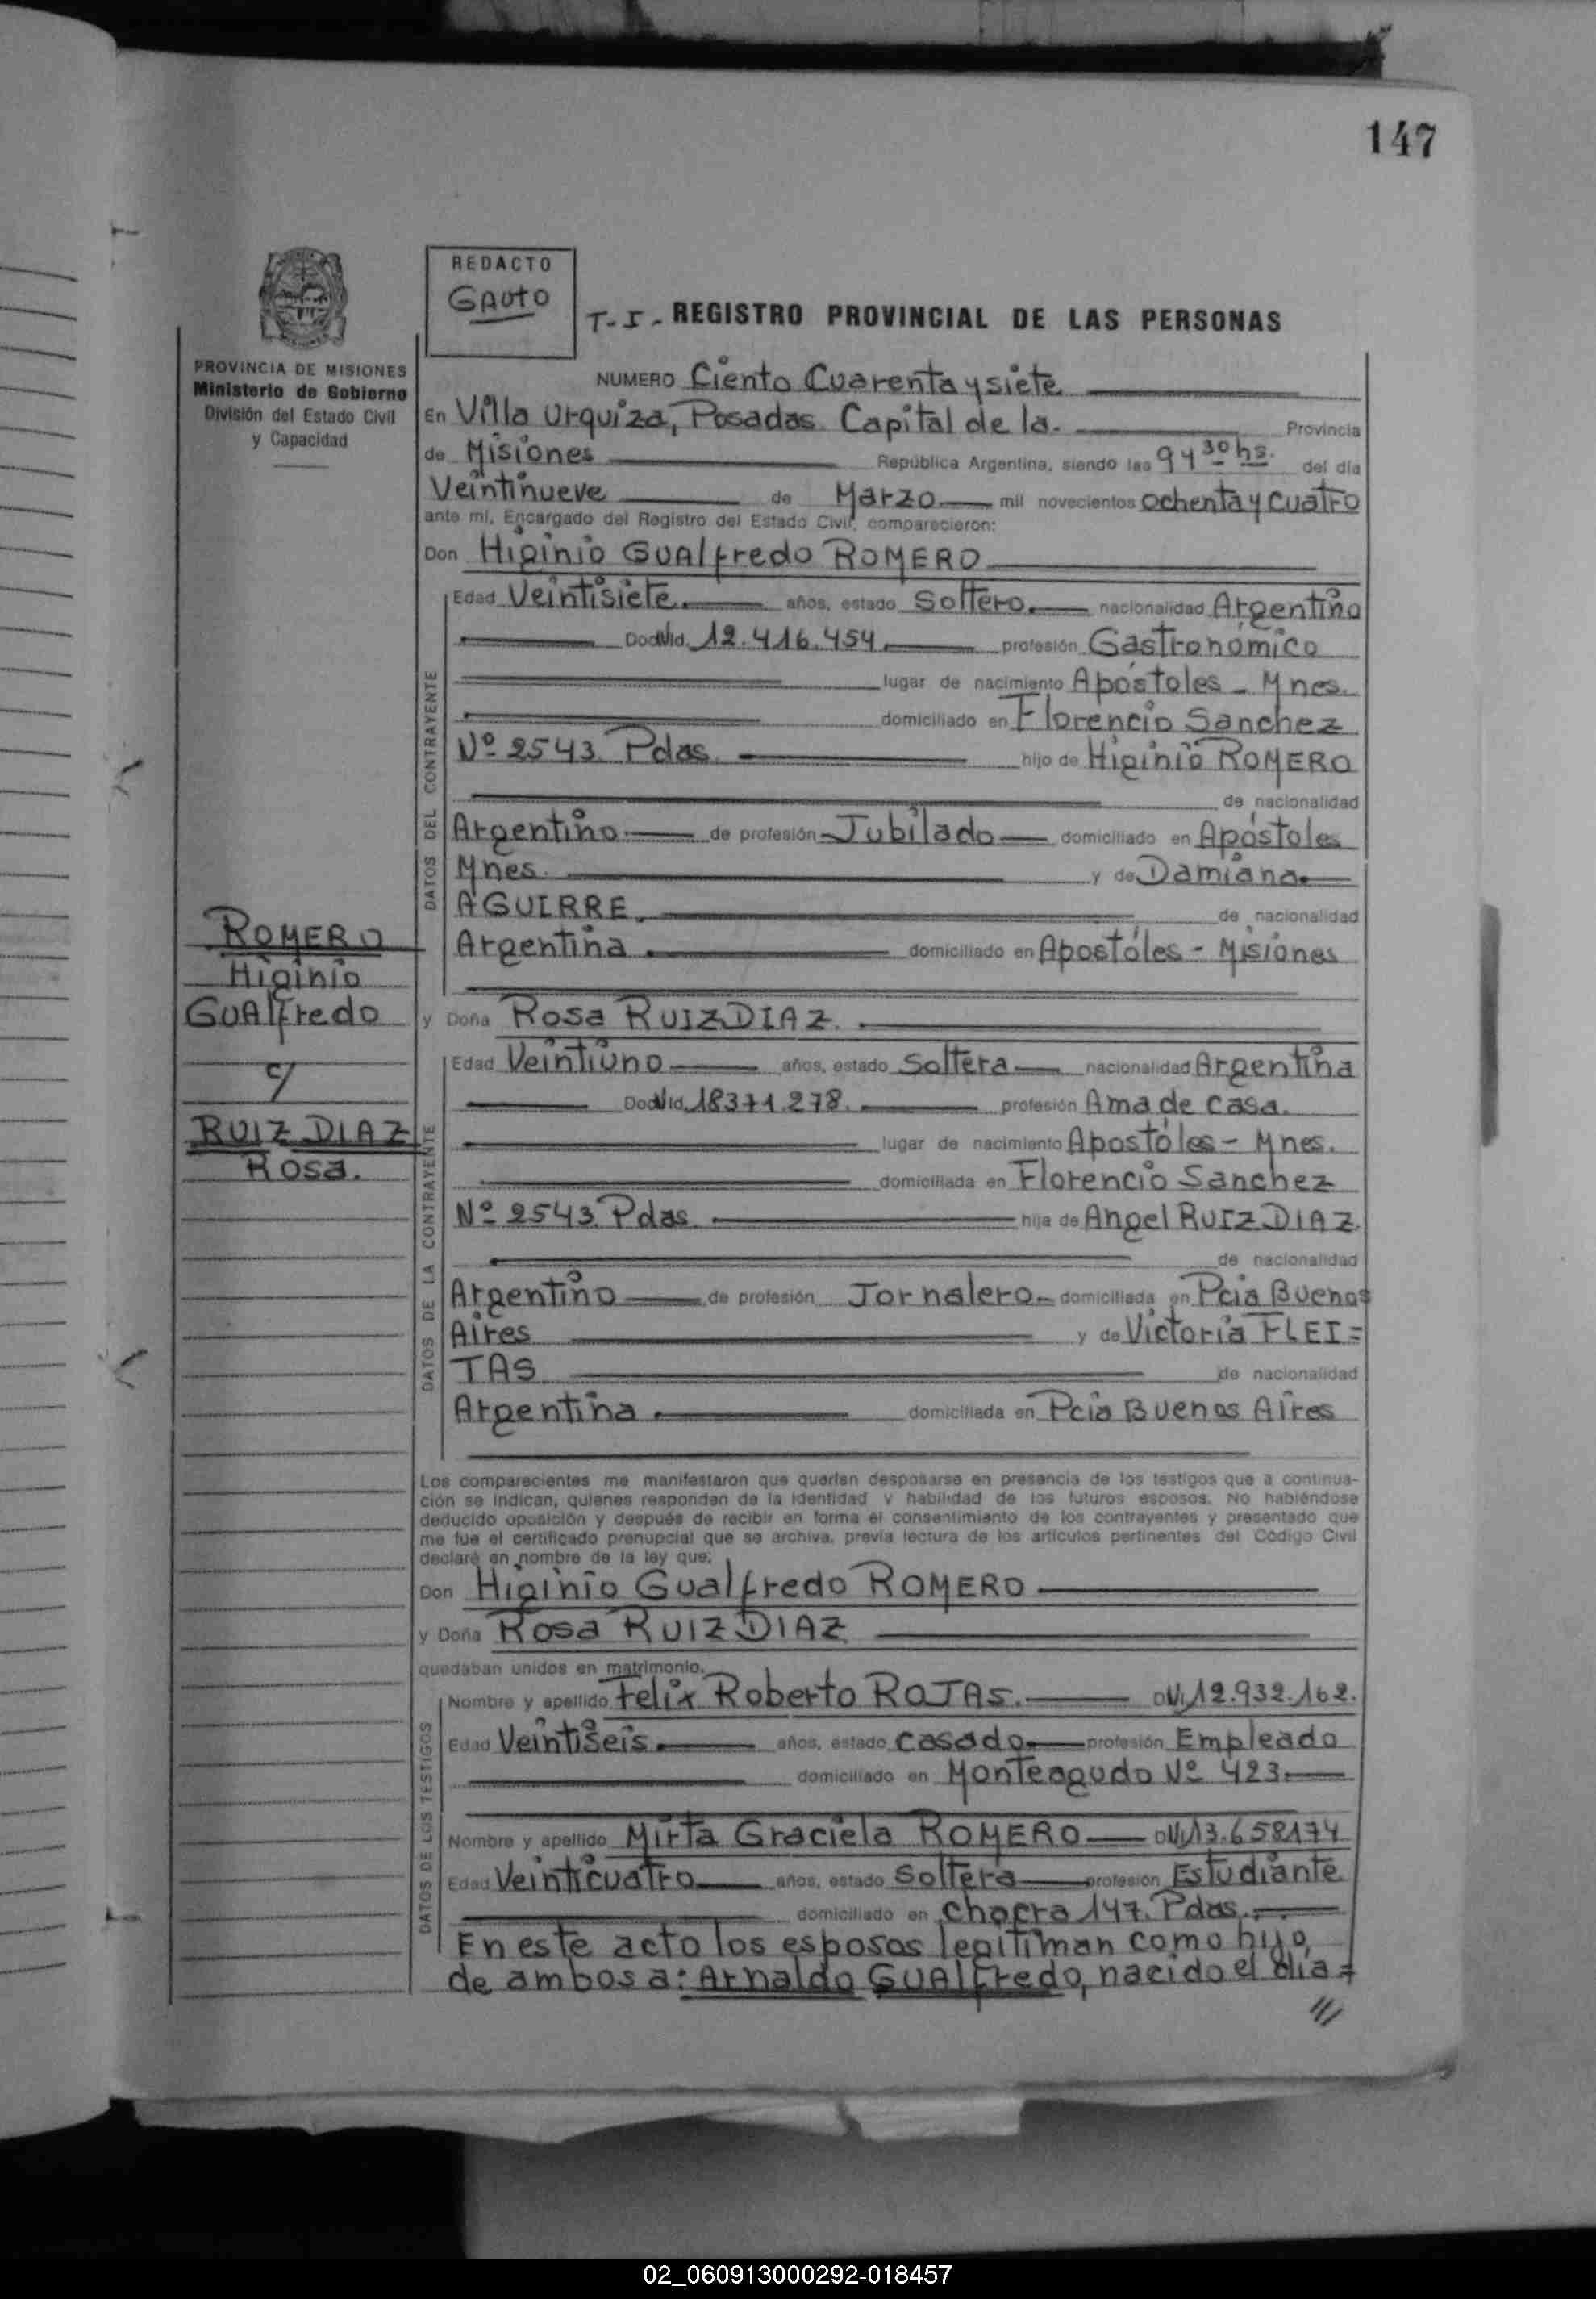 147
REDACTO
GAUTO
T-I- REGISTRO PROVINCIAL DE LAS PERSONAS
PROVINCIA DE MISIONES
Ministerio de Gobierno
División del Estado Civil
y Capacidad
NUMERO Ciento Cuarenta y siete
En Villa Urquiza, Posadas. Capital de la. Provincia
de Misiones República Argentina, siendo las 9 y 30 hs. del día
Veintinueve de Marzo mil novecientos ochenta y cuatro
ante mí, Encargado del Registro del Estado Civil, comparecieron:
Don Higinio GUAlfredo ROMERO
DATOS DEL CONTRAYENTE
Edad Veintisiete. años, estado Soltero. nacionalidad Argentina
Doc. Id. 12.416.454 profesión Gastronómico
lugar de nacimiento Apóstoles - Mnes.
domiciliado en Florencio Sanchez
Nº 2543. Pdas. hijo de Higinio ROMERO
de nacionalidad
Argentino de profesión Jubilado domiciliado en Apóstoles
Mnes. y de Damiana.
AGUIRRE. de nacionalidad
Argentina domiciliado en Apostóles - Misiones
ROMERO
Higinio
GUAlfredo
c/
RUIZ DIAZ
Rosa.
y Doña Rosa RUIZ DIAZ.
DATOS DE LA CONTRAYENTE
Edad Veintiuno años, estado Soltera nacionalidad Argentina
profesión Ama de casa.
lugar de nacimiento Apostóles - Mnes.
domiciliada en Florencio Sanchez
Nº 2543. Pdas. hija de Angel RUIZ DIAZ.
de nacionalidad
Argentino de profesión Jornalero domiciliada en Pcia Buenos
Aires y de Victoria FLEI=
TAS de nacionalidad
Argentina. domiciliada en Pcia Buenos Aires
Los comparecientes me manifestaron que querían desposarse en presencia de los testigos que a continua-
ción se indican, quienes responden de la identidad y habilidad de los futuros esposos. No habiéndose
deducido oposición y después de recibir en forma el consentimiento de los contrayentes y presentado que
me fue el certificado prenupcial que se archiva, previa lectura de los artículos pertinentes del Código Civil
declaré en nombre de la ley que:
Don Higinio Gualfredo ROMERO
y Doña Rosa RUIZ DIAZ
quedaban unidos en matrimonio.
DATOS DE LOS TESTIGOS
Nombre y apellido Felix Roberto ROJAS. 12.932.162.
Edad Veintiseis. años, estado casado profesión Empleado
domiciliado en Monteagudo Nº 423.
Nombre y apellido Mirta Graciela ROMERO 13.658174
Edad Veinticuatro años, estado Soltera profesión Estudiante
domiciliado en chacra 147. Pdas.
En este acto los esposos legitiman como hijo,
de ambos a: Arnaldo GUAlfredo, nacido el día =
///
02_060913000292-018457